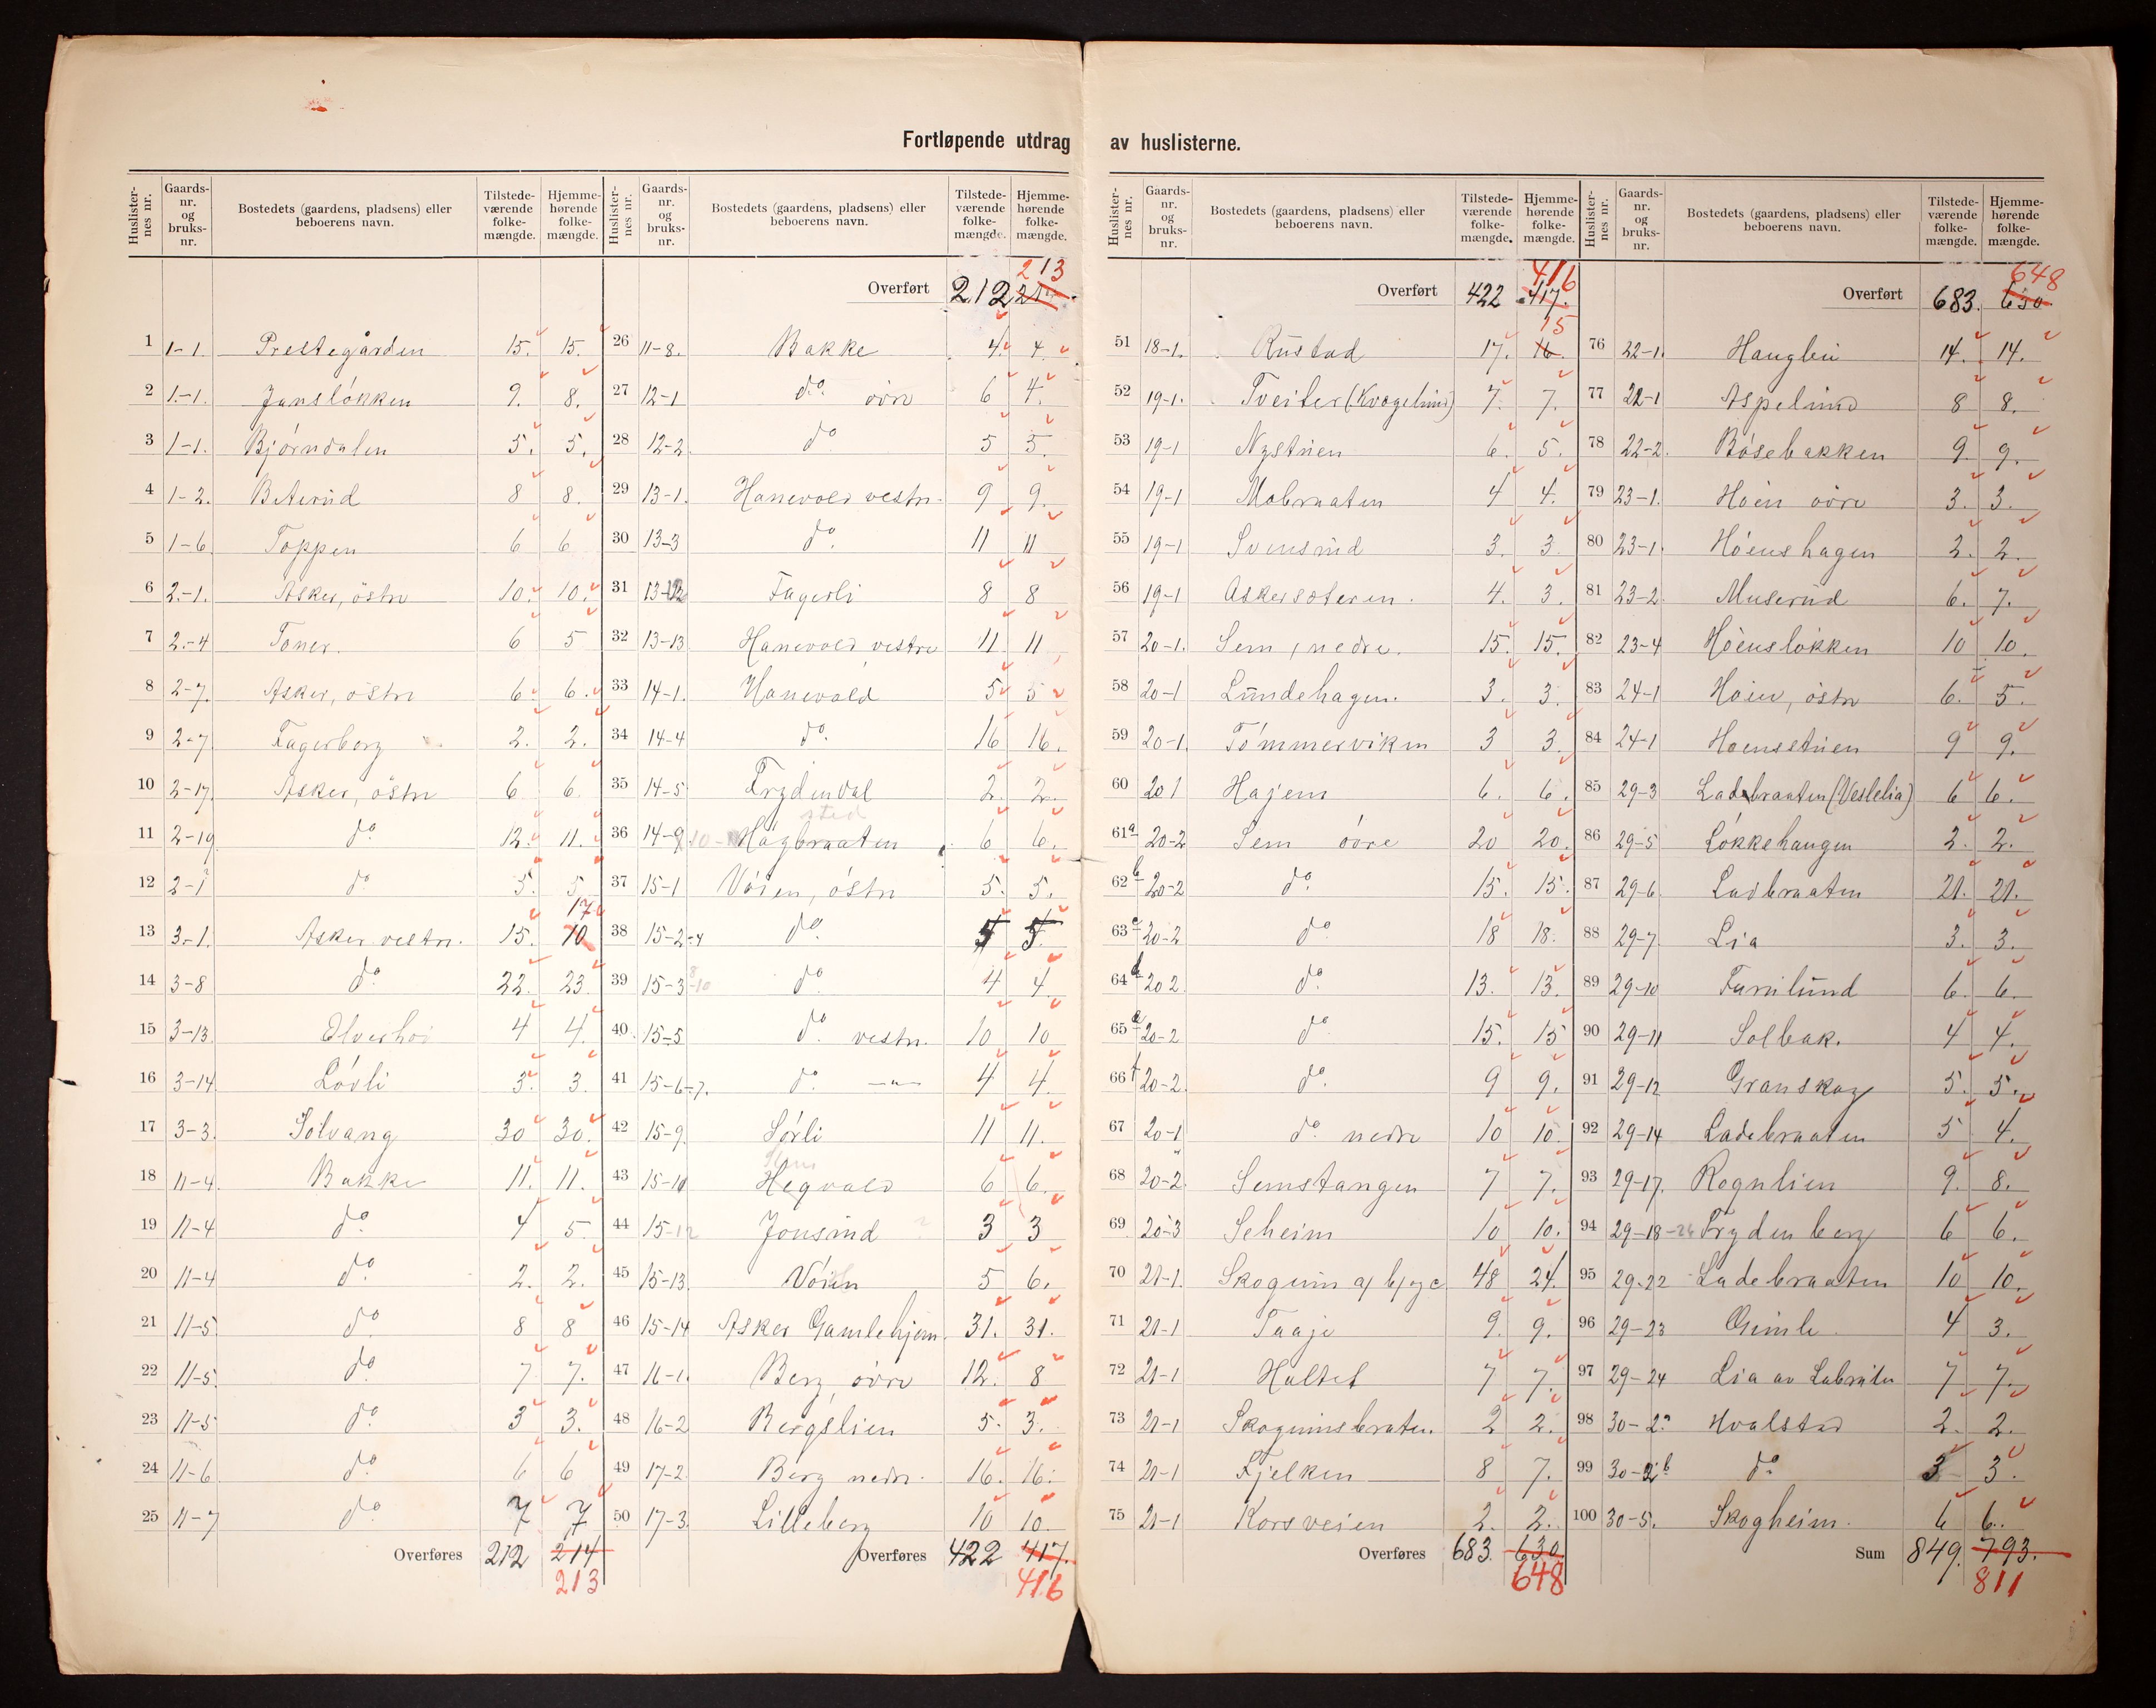 Fortløpende utdrag av huslisterne.
Huslisternes nr. Gaards-nr. og bruks-nr. Bostedets (gaardens, pladsens) eller beboerens navn. Tilstedeværende folkemængde. Hjemmehørende folkemængde.
1 1-1. Prestegården 15. 15.
2 1-1. Jansløkken 9. 8.
3 1-1. Bjørndalen 5. 5.
4 1-2. Beterud 8 8.
5 1-6. Toppen 6 6
6 2-1. Asker, östre 10. 10.
7 2-4 Toner. 6 5
8 2-7. Asker, östre 6. 6.
9 2-7 Fagerborg 2. 2.
10 2-17 Asker, östre 6 6.
11 2-19 do 12. 11.
12 2-1 do 5. 5.
13 3-1. Asker vestre. 15. 10 17
14 3-8 do 22. 23.
15 3-13 Elverhøi 4 4.
16 3-14 Lövli 3. 3.
17 3-3. Solvang 30 30.
18 11-4. Bakke 11. 11.
19 11-4 do 4 5.
20 11-4 do 2. 2.
21 11-5 do 8 8
22 11-5. do 7 7.
23 11-5 do 3 3.
24 11-6 do 6 6
25 11-7 do 7 7
Overføres 212 214 213
Huslisternes nr. Gaards-nr. og bruks-nr. Bostedets (gaardens, pladsens) eller beboerens navn. Tilstedeværende folkemængde. Hjemmehørende folkemængde.
Overført 212 213
26 11-8. Bakke 4. 4.
27 12-1 do. övre 6 4.
28 12-2 do 5 5.
29 13-1. Hanevold vestre. 9 9.
30 13-3 do. 11 11
31 Fagerli 8 8
32 13-13 Hanevold vestre 11 11
33 14-1. Hanevold 5 5
34 14-4 do. 16 16.
35 14-5 Frydendal 2. 2.
36 14-9 Högbraaten 6 6.
37 15-1 Vöien, östre 5. 5.
38 15-2-4 do. 5 5.
39 15-3 do. 4 4
40. 15-5 do. vestre. 10 10
41 15-6-7. do. —"— 4 4.
42 15-9. Sörli 11 11.
43 15-10 Hegvold 6 6.
44 15-12 Jonsrud 3 3
45 15-13. Vöien 5 6.
46 15-14 Asker Gamlehjem. 31. 31.
47 16-1. Berg, övre 12. 8
48 16-2 Bergslien 5. 3.
49 17-2. Berg nedre. 16. 16.
50 17-3. Lilleberg 10 10.
Overføres 422 417. 416
Huslisternes nr. Gaards-nr. og bruks-nr. Bostedets (gaardens, pladsens) eller beboerens navn. Tilstedeværende folkemængde. Hjemmehørende folkemængde.
Overført 422 417. 416
51 18-1. Rustad 17. 16. 15
52 19-1. Tveiter (Kvagelund) 7. 7.
53 19-1 Nystuen 6. 5.
54 19-1 Mobraaten 4 4.
55 19-1 Svensrud 3. 3
56 19-1 Askersæteren. 4. 3.
57 20-1. Sem, nedre. 15. 15.
58 20-1 Lundehagen. 3. 3.
59 20-1. Tömmerviken 3 3.
60 20 1 Hajem 6. 6.
61a 20-2 Sem övre 20 20.
62b 20-2 do. 15. 15.
63c 20-2 do 18 18.
64d 20 2. do. 13. 13.
65e 20-2 do 15. 15
66f 20-2. do. 9 9.
67 20-1 do. nedre 10 10.
68 20-2. Semstangen 7 7.
69 20-3 Seheim 10 10.
70 21-1. 48 24.
71 21-1 Taaje 9. 9.
72 21-1 Hultet 7 7.
73 21-1 Skogumsbraten. 2 2.
74 21-1 Fjelken 8 7.
75 21-1 Korsveien 2. 2.
Overføres 683. 630 648
Huslisternes nr. Gaards-nr. og bruks-nr. Bostedets (gaardens, pladsens) eller beboerens navn. Tilstedeværende folkemængde. Hjemmehørende folkemængde.
Overført 683. 630 648
76 22-1. Hauglin 14. 14.
77 22-1 Aspelund 8 8.
78 22-2. Bösebakken 9. 9.
79 23-1. Höen övre 3. 3.
80 23-1. Höenshagen 2. 2.
81 23-2. Muserud 6. 7.
82 23-4 Höenslökken 10 10.
83 24-1 Höen, östre 6. 5.
84 24-1 Hoensstuen 9 9.
85 29-3 Ladebraaten (Veslelia) 6 6.
86 29-5 Lökkehaugen 2. 2.
87 29-6. Ladbraaten 21. 21.
88 29-7. Lia 3. 3.
89 29-10 Furulund 6. 6.
90 29-11 Solbak. 4 4.
91 29-12 Granskog 5. 5.
92 29-14 Ladebraaten 5 4.
93 29-17. Rognlien 9. 8.
94 29-18-26 Frydenberg 6 6.
95 29-22 Ladebraaten 10 10.
96 29-23 Gimle. 4 3.
97 29-24 7 7.
98 30-2a Hvalstad 2. 2.
99 30-2b do 3 3.
100 30-5. Skogheim. 6 6.
Sum 849. 793. 811